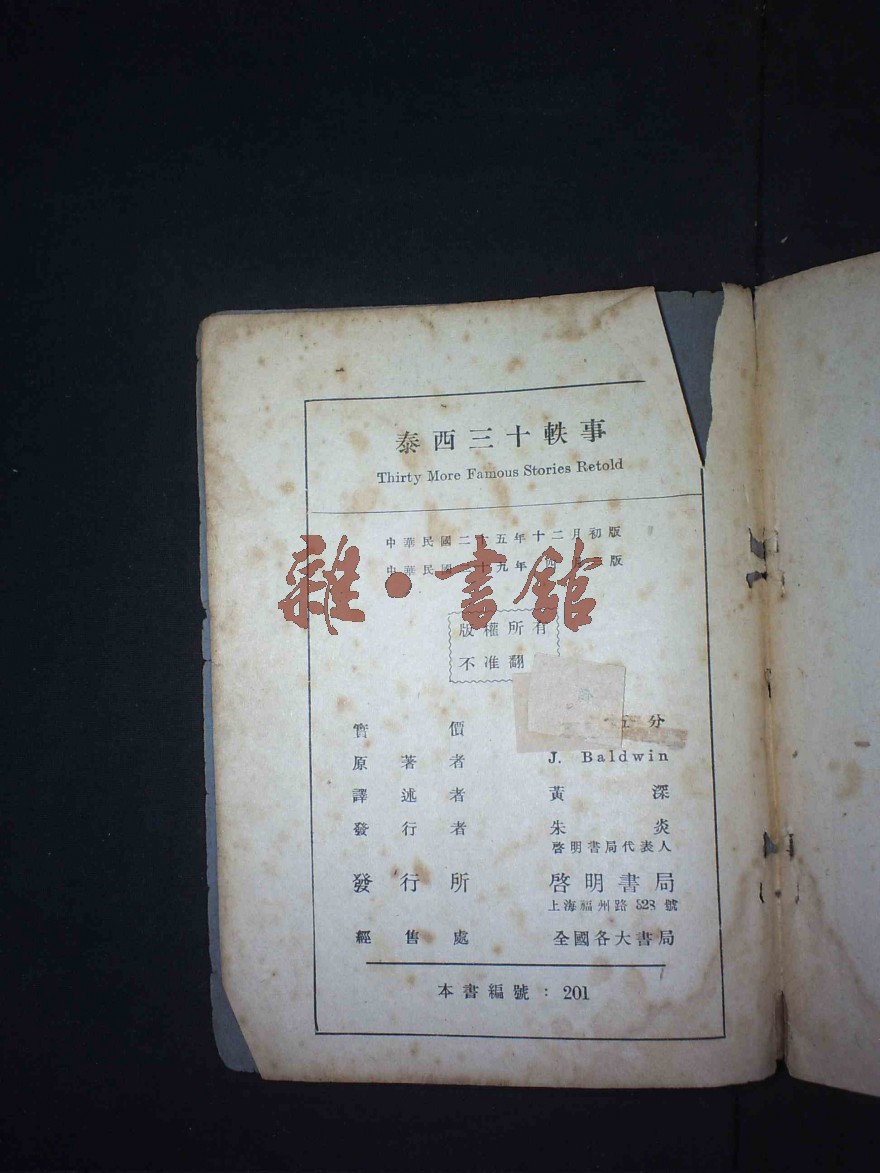 泰西三十軼事
Thirty More Famous Stories Retold
中華民國二十五年十二月初版
中華民國 十九年 四月 版
雜·書館
版權所有
不准翻
實價 五分
原著者 J. Baldwin
譯述者 黃深
發行者 朱炎
啓明書局代表人
發行所 啓明書局
上海福州路328號
經售處 全國各大書局
本書編號：201